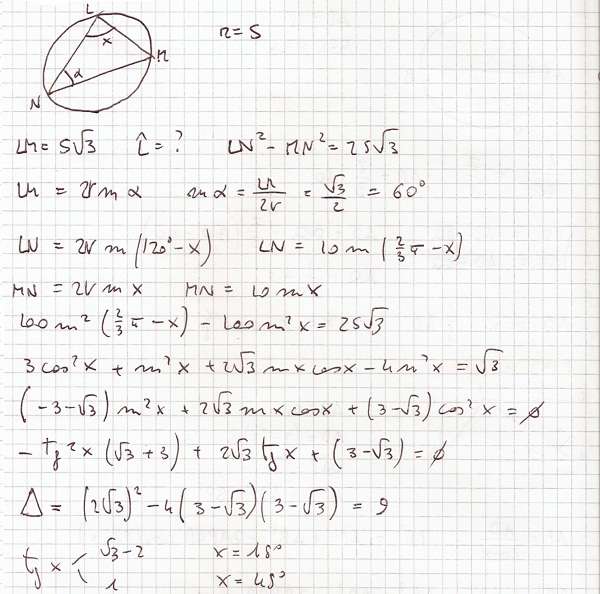 L
x
M
α
N
r=5
LM = 5√3 L̂ = ? LN² - MN² = 25√3
LM = 2r sen α sen α = LM/2r = √3/2 = 60°
LN = 2r sen (120° - x) LN = 10 sen (2/3 π - x)
MN = 2r sen x MN = 10 sen x
100 sen² (2/3 π - x) - 100 sen² x = 25√3
3 cos² x + sen² x + 2√3 sen x cos x - 4 sen² x = √3
(-3-√3) sen² x + 2√3 sen x cos x + (3-√3) cos² x = ∅
- tg² x (√3 + 3) + 2√3 tg x + (3-√3) = ∅
Δ = (2√3)² - 4 (3-√3)(3-√3) = 9
tg x < √3 - 2 x = 15°
1 x = 45°